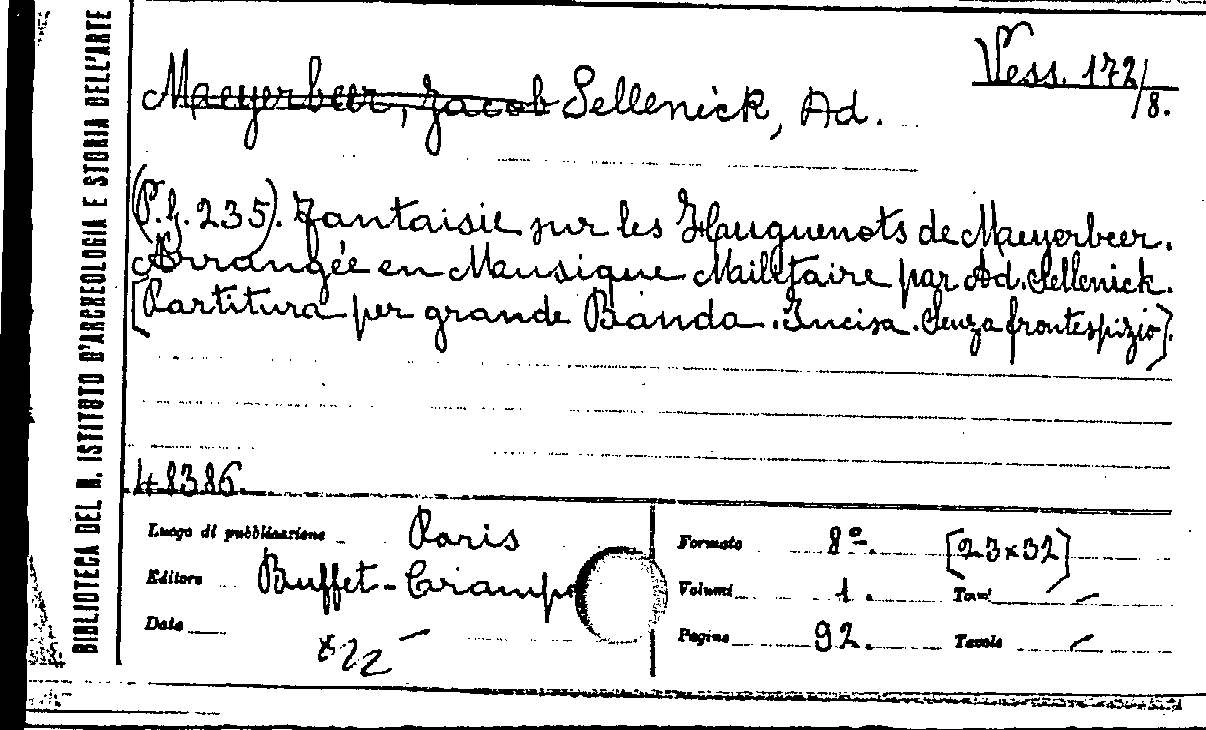 BIBLIOTECA DEL R. ISTITUTO D'ARCHEOLOGIA E STORIA DELL'ARTE
Vess. 172/8.
Maeyerbeer, Jacob Sellenick, Ad.
(P.f. 235). Fantaisie sur les Hauguenots de Maeyerbeer.
Arrangée en Mausique Mailitaire par Ad. Sellenick.
[Partitura per grande Banda. Incisa. Senza frontespizio].
48386.
Luogo di pubblicazione Paris
Editore Buffet-Crampo
Data
*22 —
Formato 8º. [23×32]
Volumi 1. Tomi —
Pagine 92. Tavole —